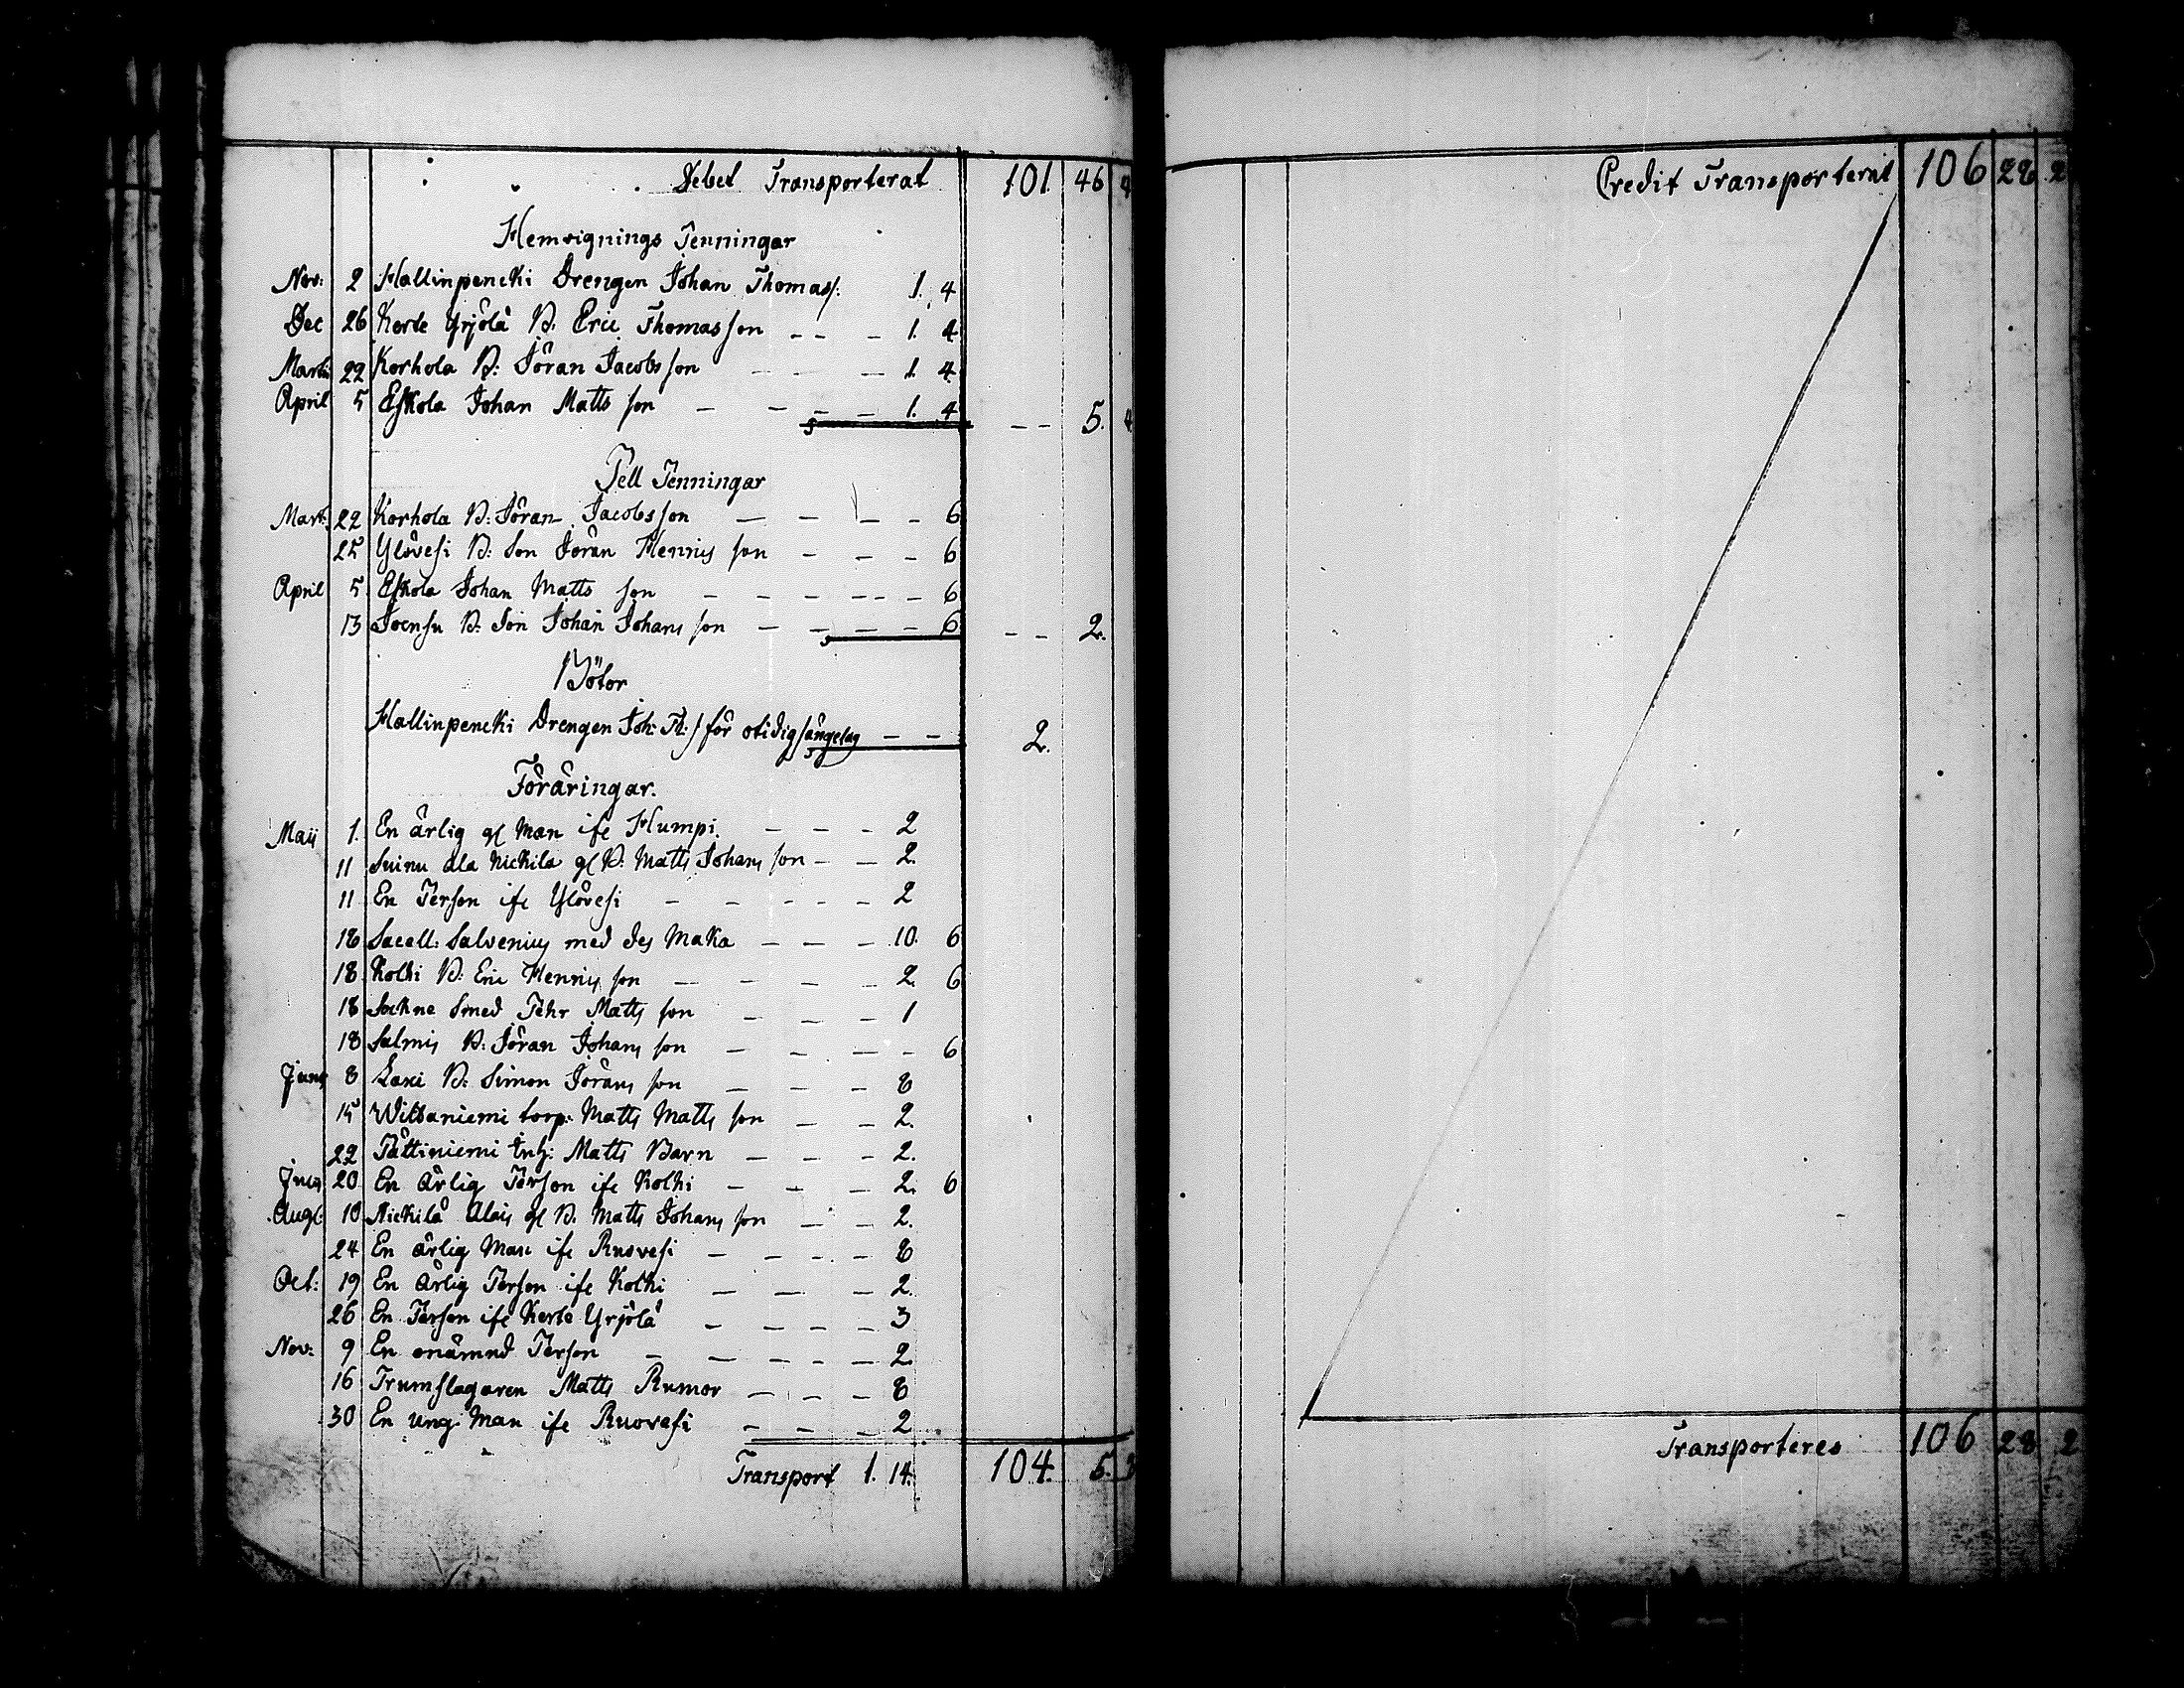 Debet Transporterat 101 46
Hemvignings Penningar
Nov: 2 Hallinpencki Drengen Johan Thomass: 1. 4
Dec 26 Kerte Yrjölä B: Eric Thomasson - - - 1. 4
Martii 22 Korhola B: Jöran Jacobsson - - - 1. 4
April 5 Eskola Johan Matts son - - - - 1. 4
- - 5. 4
Tell Penningar
Mart: 22 Korhola B: Jöran Jacobsson - - - - 6
25 Ylövesi B: Son Jöran Henrics son - - - 6
April 5 Eskola Johan Matts son - - - - - - 6
13 Joensu B: Son Johan Johans son - - - - 6 - - 2.
Böter
Hallinpencki Drengen Joh: Th:s för otidig sängelag - - 2.
Föräringar.
Maii 1. En ärlig gl Man ifr Humpi - - - 2
11 Suinu ala Nickila gl B: Matts Johans son - - 2.
11 En Person ifr Ylövesi - - - - - 2
18 Sacell: Salvenius med des Maka - - - 10. 6
18 Kolki B: Eric Henrics son - - - - 2. 6
18 Sockne Smed Pehr Matts son - - - 1
18 Salmis B: Jöran Johans son - - - - 6
Junii 8 Laxi B: Simon Jörans son - - - - 8
15 Witsaniemi torp: Matts Matts son - - 2.
22 Pättiniemi Inh: Matts Barn - - - 2.
Julii 20 En Ärlig Person ifr Kolki - - - 2. 6
Aug: 10 Nickilä Alais gl B. Matts Johans son - - 2.
24 En ärlig Man ifr Ruovesi - - - - 8
Oct: 19 En Ärlig Person ifr Kolki - - - 2.
26 En Person ifr Kerte Yrjölä - - - - 3
Nov: 9 En onämnd Person - - - - - 2.
16 Trumslagaren Matts Rumor - - - 8
30 En ung Man ifr Ruovesi - - - 2
Transport 1. 14. 104. 5.
Credit Transporterat 106 28 2
Transporteres 106 28 2